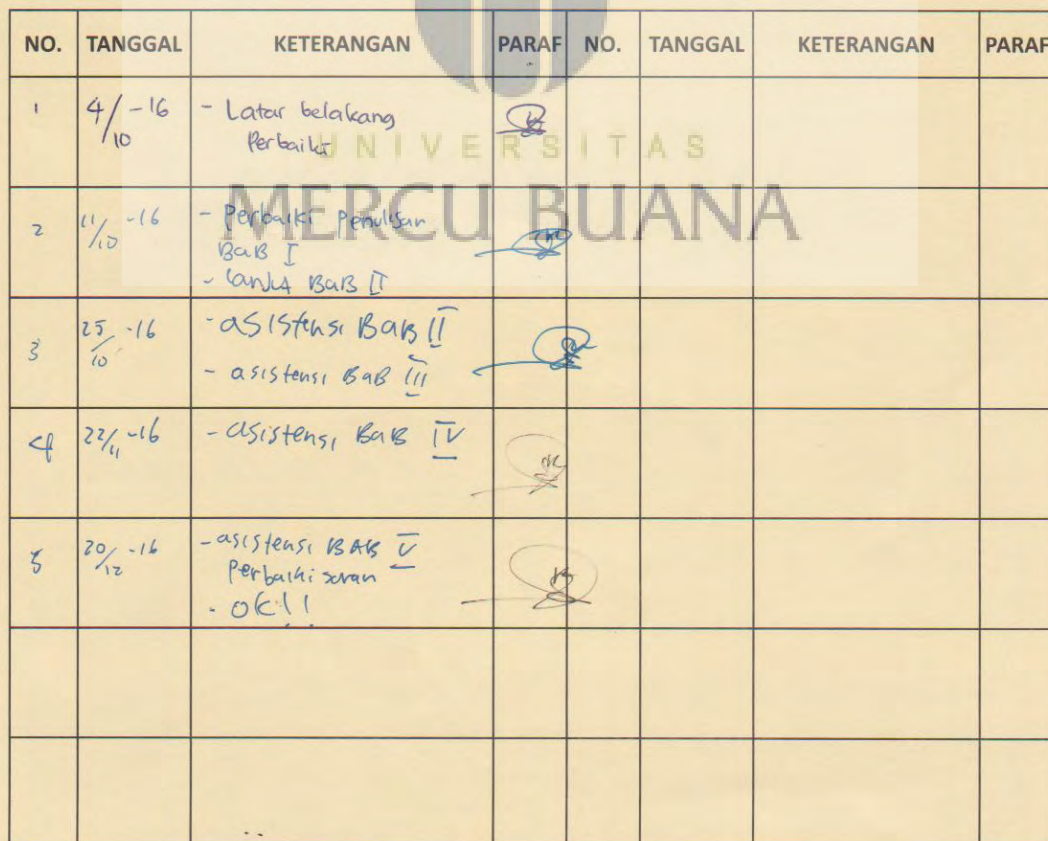 NO. TANGGAL KETERANGAN PARAF NO. TANGGAL KETERANGAN PARAF
1 4/10 -16 - Latar belakang
Perbaiki
UNIVERSITAS
MERCU BUANA
2 11/10 -16 - Perbaiki Penulisan
BaB I
- lanjut BaB II
3 25/10 -16 - asistensi BaB II
- asistensi BaB III
4 22/11 -16 - asistensi BaB IV
5 20/12 -16 - asistensi BAB V
Perbaiki saran
- OK!!